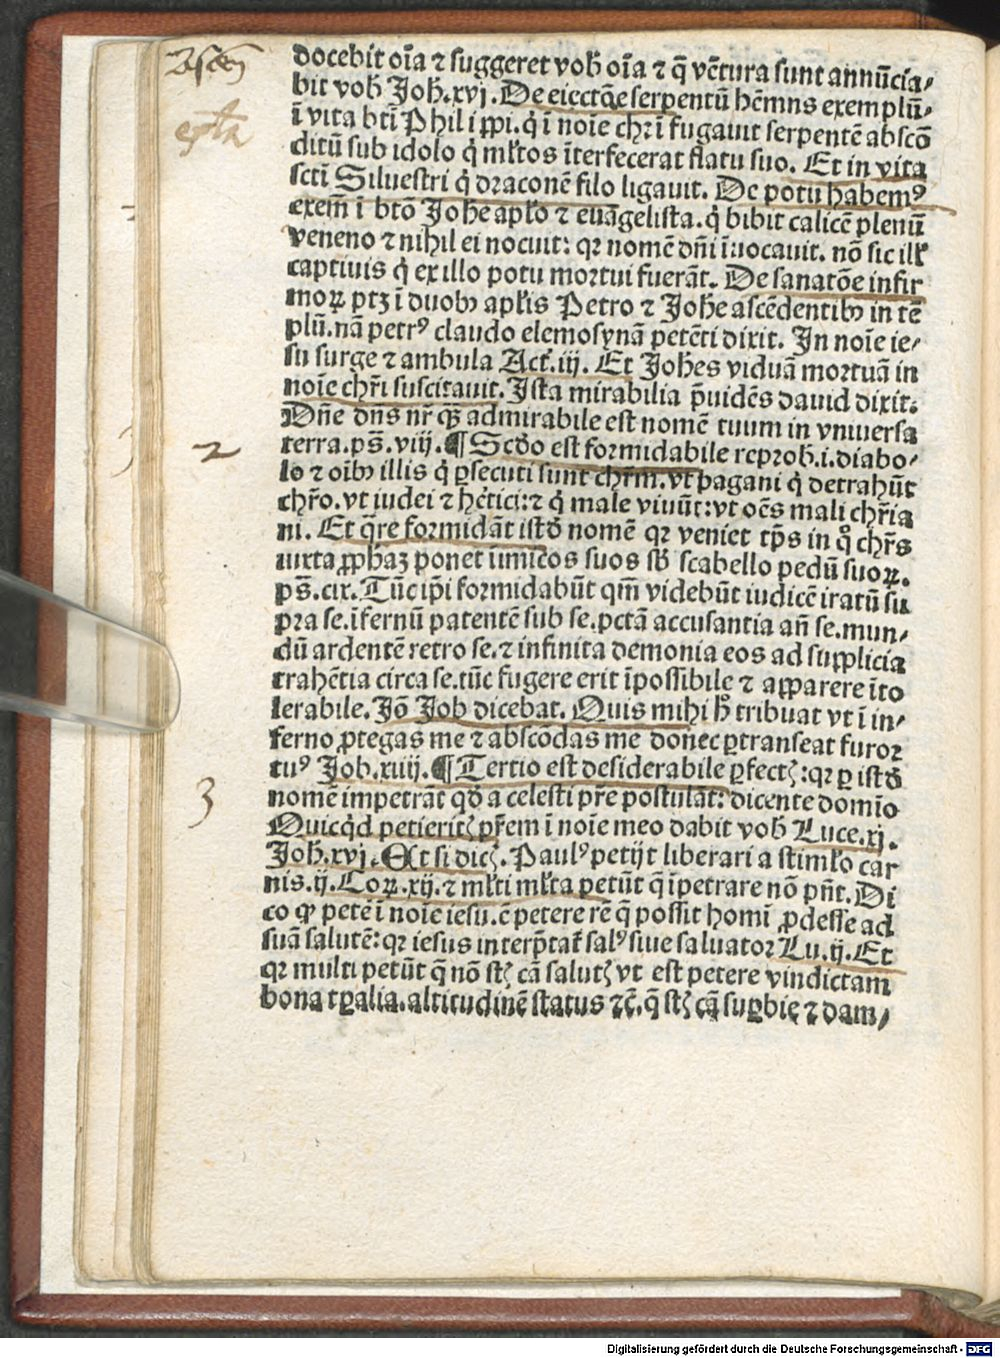 docebit oĩa ⁊ suggeret vob̃ oĩa ⁊ q̃ vẽtura sunt annũcia⸗
bit vob̃ Joh̃.xvj. De eiectõe serpentũ hẽmus exemplũ⸗
ĩ vita btĩ Philippi. q̇ ĩ noĩe chr̃i fugauit serpentẽ abscõ
ditũ sub idolo q̇ ml̃tos ĩterfecerat flatu suo. Et in vita
sctĩ Siluestri q̇ draconẽ filo ligauit. De potu habemꝰ
exem̃ ĩ btõ Joh̃e apl̃o ⁊ euãgelista. q̇ bibit calicẽ plenũ
veneno ⁊ nihil ei nocuit: qꝛ nomẽ dñi ĩuocauit. nõ sic ill̃
captiuis q̇ ex illo potu mortui fuerãt. De sanatõe infir
moꝝ ptꝫ ĩ duobꝰ apl̃is Petro ⁊ Joh̃e ascẽdentibꝰ in tẽ
plũ. nã petrꝰ claudo elemosynã petẽti dixit. In noĩe ie⸗
su surge ⁊ ambula Act̃. iij. Et Joh̃es viduã mortuã in
noĩe chr̃i suscitauit. Ista mirabilia p̃uidẽs dauid dixit.
Dñe dñs nr̃ q̃ꝫ admirabile est nomẽ tuum in vniuersa
terra. ps̃. viij. ¶ Scðo est formidabile reprob̃. i. diabo⸗
lo ⁊ oĩbꝰ illis q̇ ꝑsecuti sunt chr̃m. vt pagani q̇ detrahũt
chr̃o. vt iudei ⁊ hẽtici: ⁊ q̇ male viuũt: vt oẽs mali chr̃ia
ni. Et q̃re formidãt istð nomẽ qꝛ veniet tp̃s in q̊ chr̃s
iuxta ꝓph̃aꝫ ponet inimicos suos sb̃ scabello pedũ suoꝝ.
ps̃. cix. Tũc ip̃i formidabũt qm̃ videbũt iudicẽ iratũ su
pra se. ĩfernũ patentẽ sub se. pctã accusantia añ se. mun⸗
dũ ardentẽ retro se. ⁊ infinita demonia eos ad supplicia
trahẽtia circa se. tũc fugere erit ĩpossibile ⁊ apparere ĩto
lerabile. Jõ Job dicebat. Quis mihi h̃ tribuat vt ĩ in⸗
ferno ꝓtegas me ⁊ abscõdas me donec ꝑtranseat furor
tuꝰ Job. xiiij. ¶ Tertio est desiderabile ꝑfectꝭ: qꝛ ꝑ istð
nomẽ impetrãt qð a celesti pr̃e postulãt: dicente domĩo
Quicq̇d petieritꝭ pr̃em ĩ noĩe meo dabit vob̃ Luce. xj.
Joh̃. xvj. Et si dicꝭ. Paulꝰ petijt liberari a stiml̃o car
nis. ij. Coꝝ. xij. ⁊ ml̃ti ml̃ta petũt q̃ ĩpetrare nõ pñt. Di
co ꝙ petẽ ĩ noĩe iesu. ẽ petere rẽ q̃ possit homĩ ꝓdesse ad
suã salutẽ: qꝛ iesus interp̃tat̃ salꝰ siue saluator Lu. ij. Et
qꝛ multi petũt q̃ nõ st̃ cã salutꝭ vt est petere vindictam
bona tꝑalia. altitudinẽ status ⁊c̃. q̃ st̃ cã suꝑbię ⁊ dam⸗
2
3
Digitalisierung gefördert durch die Deutsche Forschungsgemeinschaft - DFG